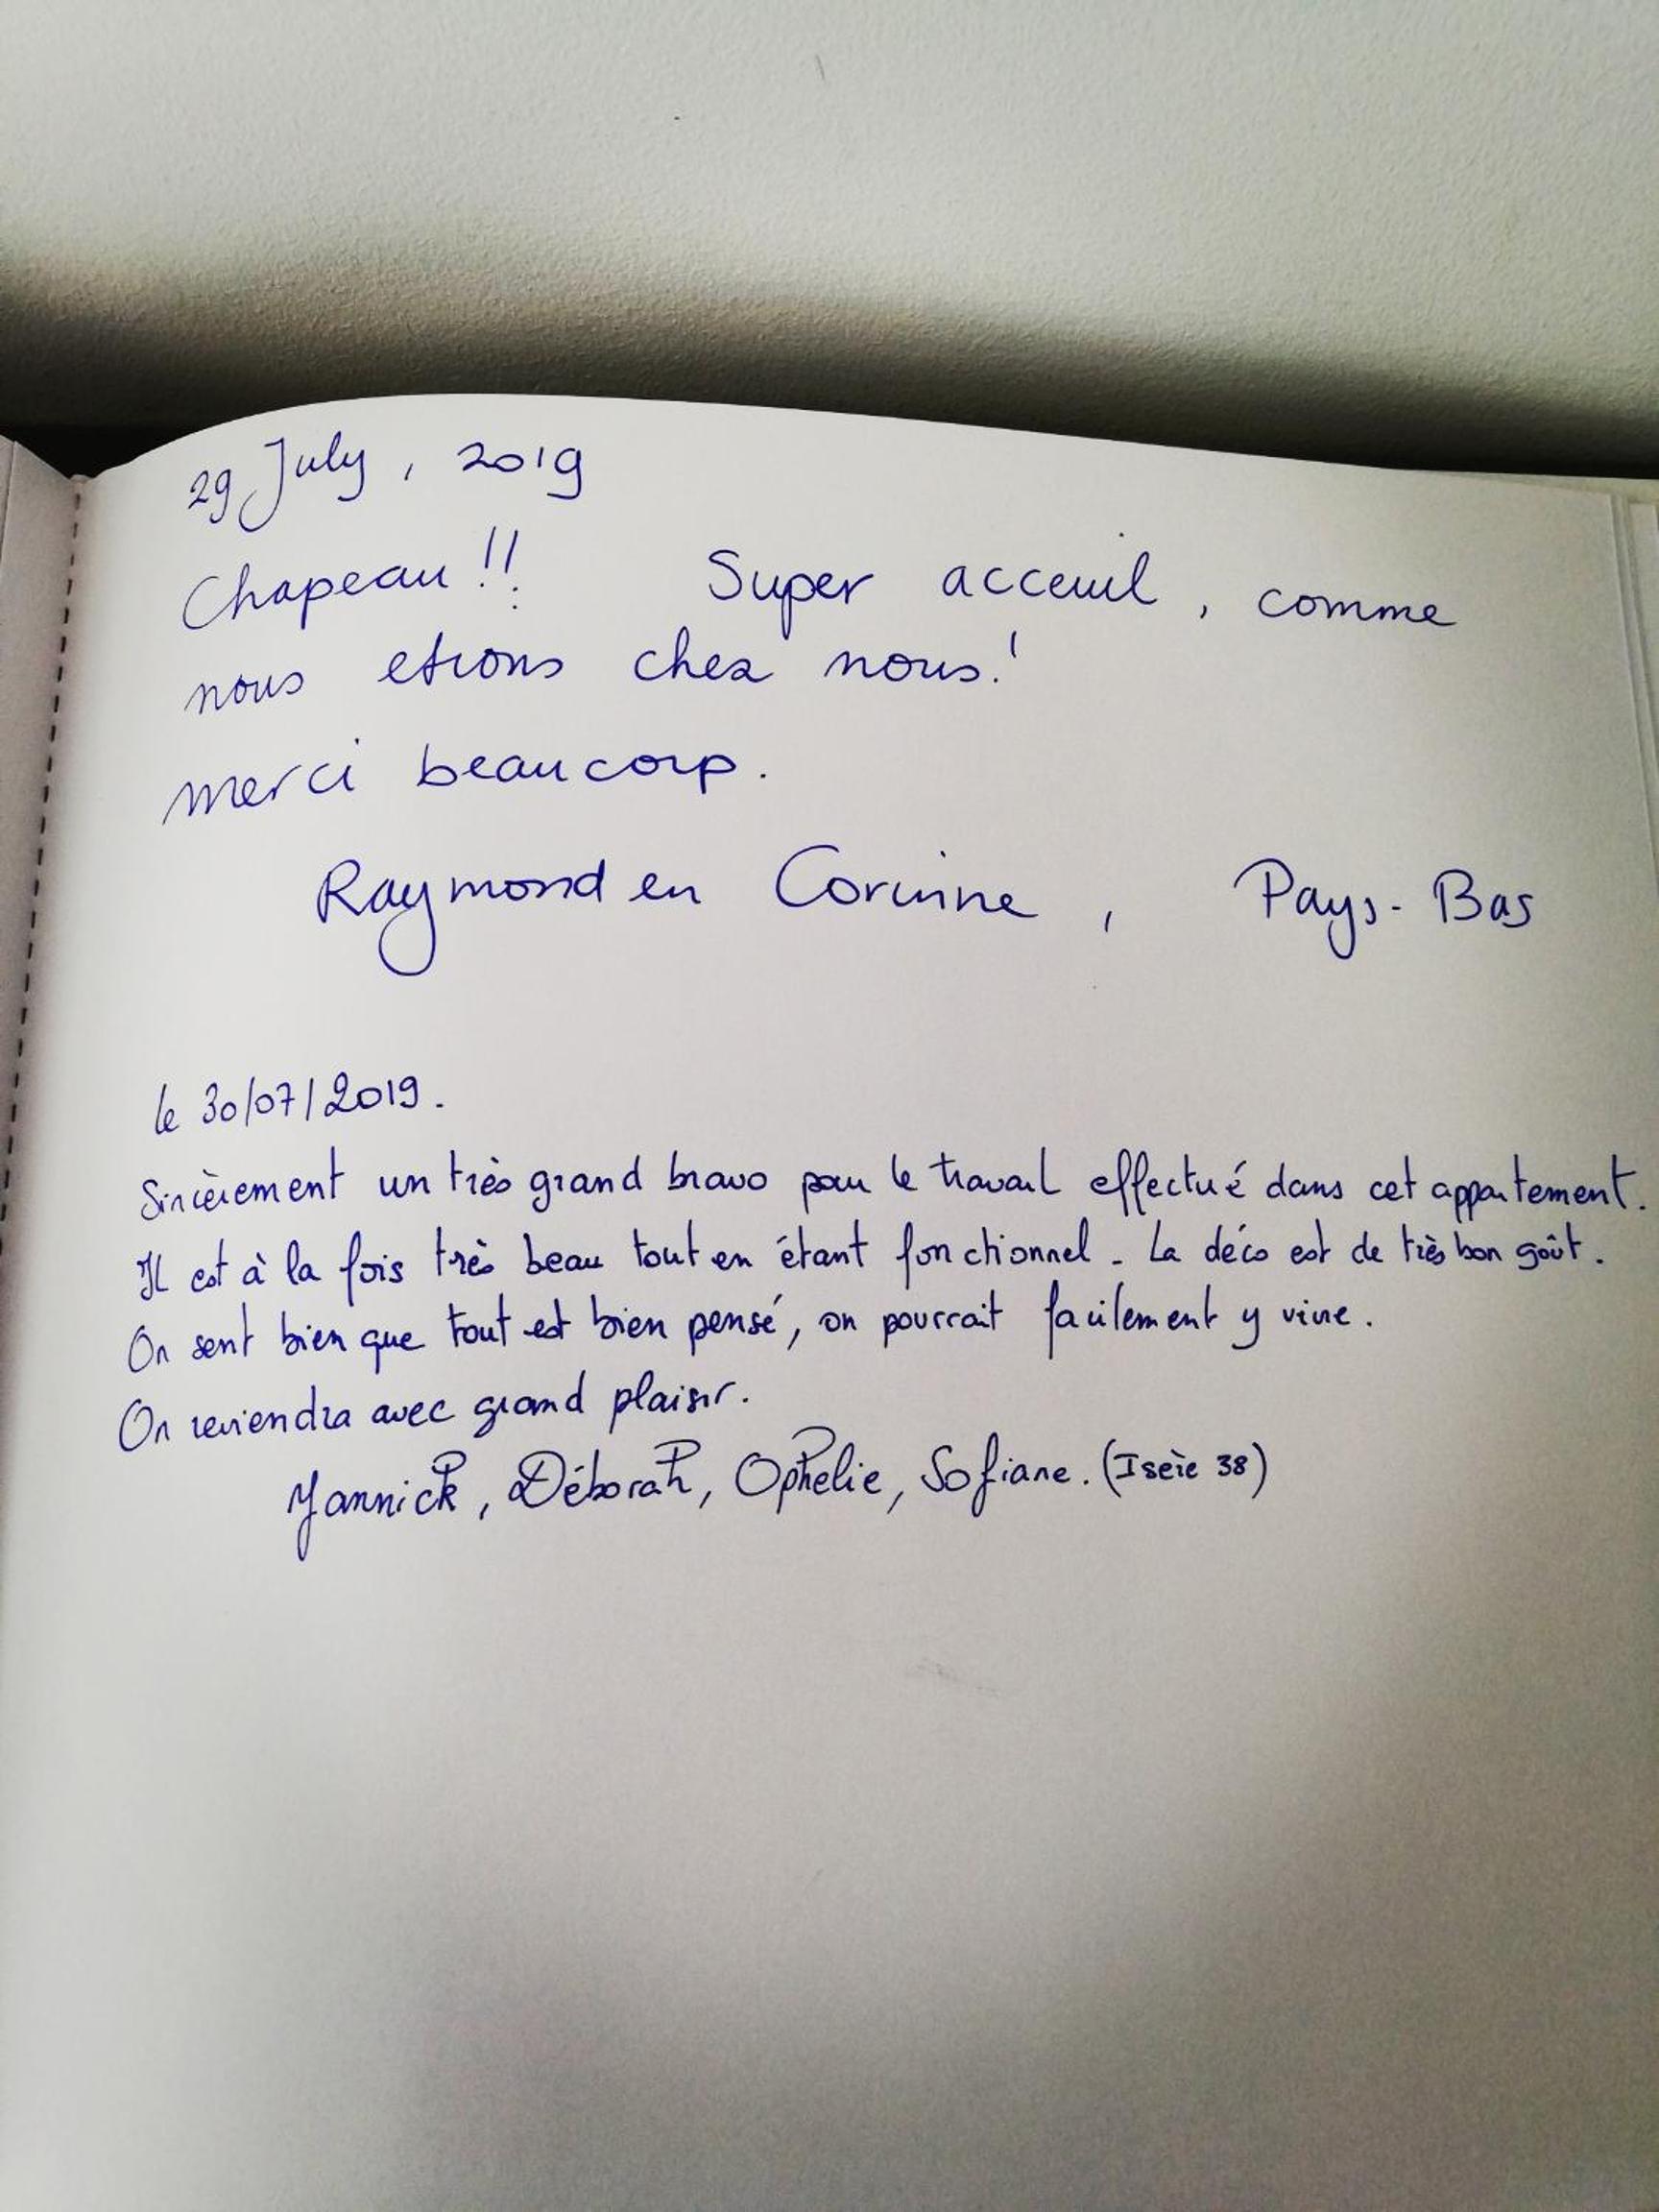 29 July, 2019
Chapeau!! Super acceuil, comme
nous etions chez nous!
merci beaucoup.
Raymond en Corinne, Pays-Bas
le 30/07/2019.
Sincèrement un très grand bravo pour le travail effectué dans cet appartement.
Il est à la fois très beau tout en étant fonctionnel. La déco est de très bon goût.
On sent bien que tout est bien pensé, on pourrait facilement y vivre.
On reviendra avec grand plaisir.
Yannick, Déborah, Ophelie, Sofiane. (Isère 38)